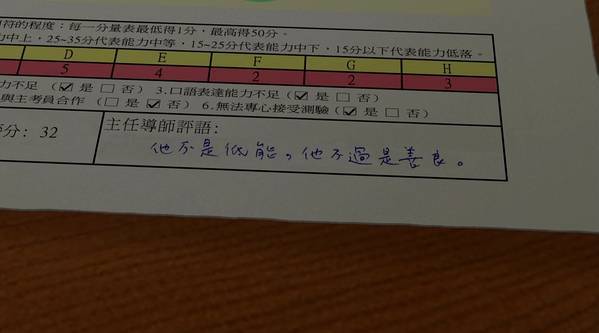 符的程度：每一分量表最低得1分，最高得50分。
力中上，25~35分代表能力中等，15~25分代表能力中下，15分以下代表能力低落。
D E F G H
5 4 2 2 3
力不足（☑ 是 □ 否） 3.口語表達能力不足（☑ 是 □ 否）
與主考員合作（□ 是 ☑ 否） 6.無法專心接受測驗（☑ 是 □ 否）
分: 32
主任導師評語:
他不是低能。他不過是善良。